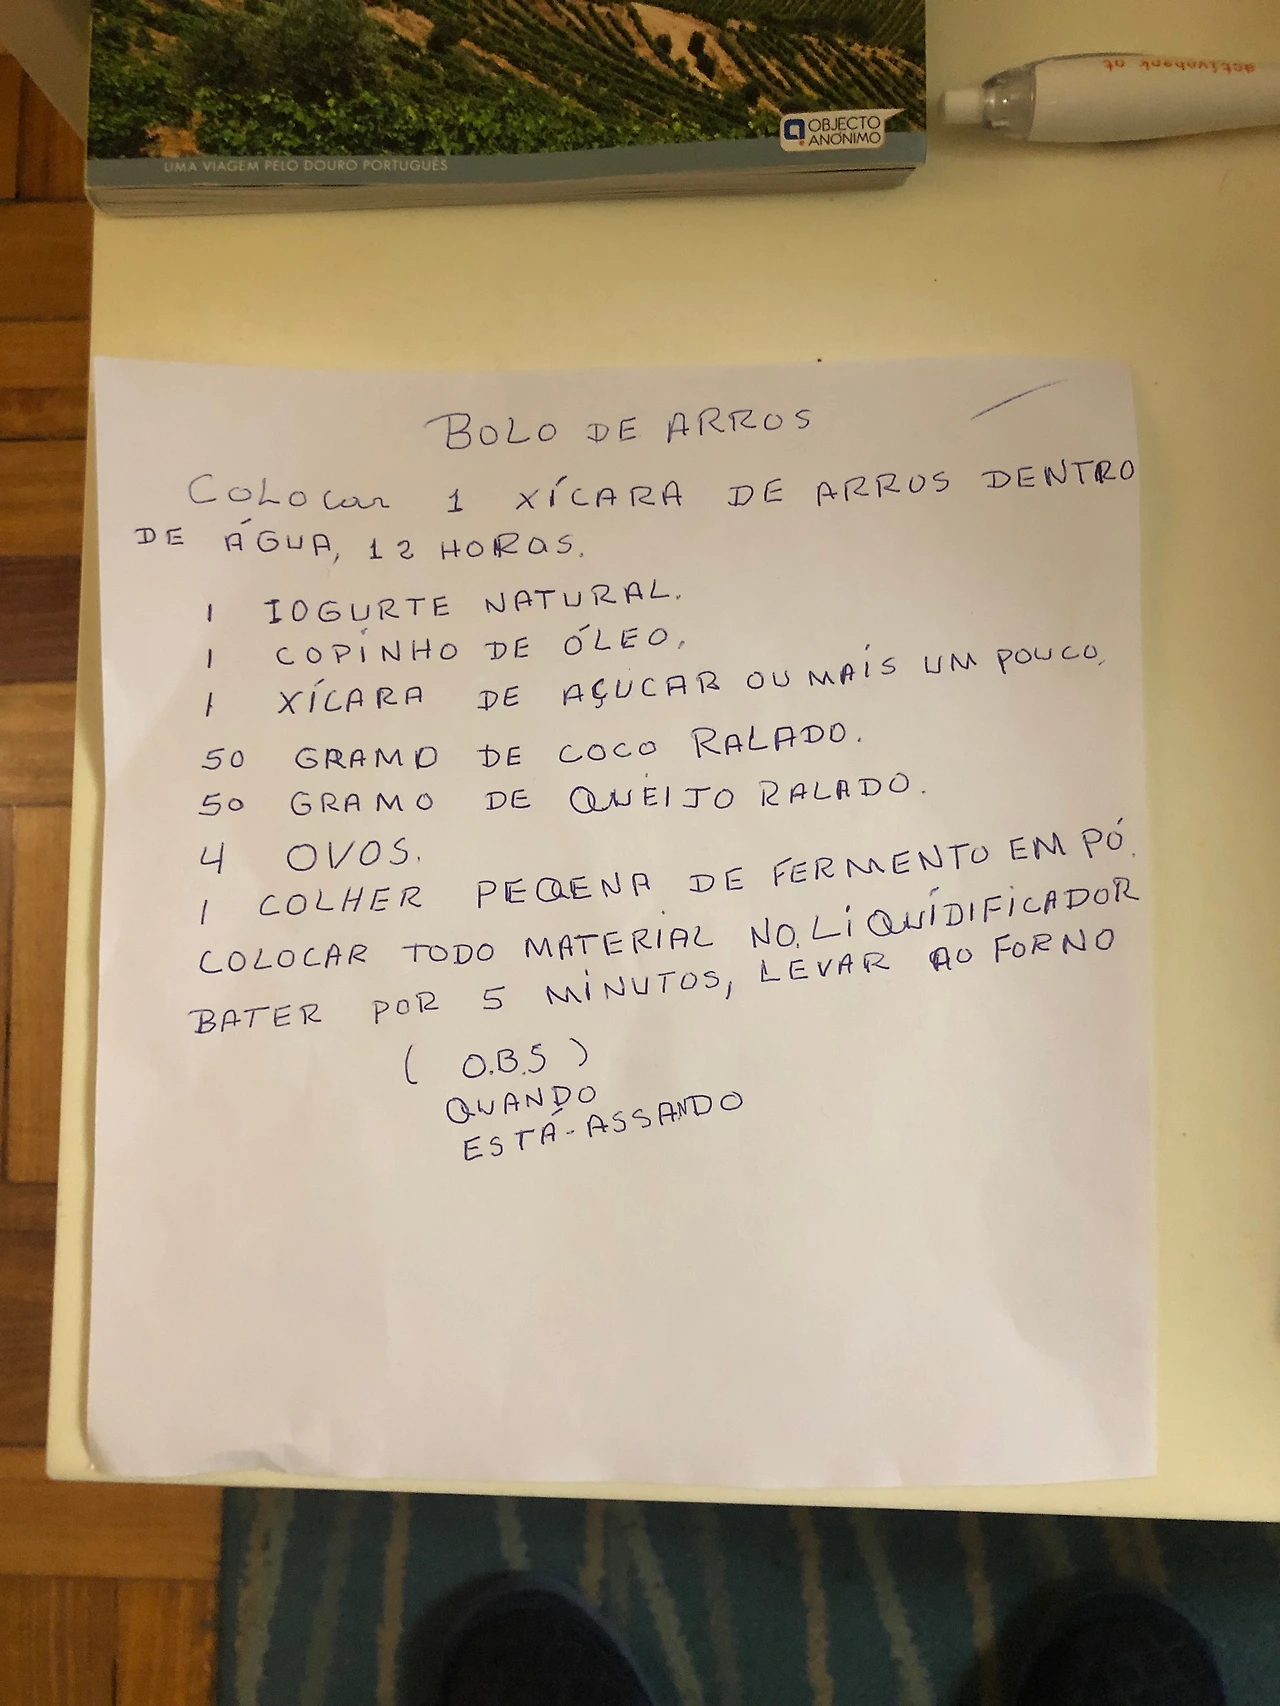 OBJECTO
ANÓNIMO
UMA VIAGEM PELO DOURO PORTUGUÊS
activobank at
BOLO DE ARROS
COLOCAR 1 XÍCARA DE ARROS DENTRO
DE ÁGUA, 12 HORAS.
1 IOGURTE NATURAL.
1 COPINHO DE ÓLEO.
1 XÍCARA DE AÇUCAR OU MAIS UM POUCO.
50 GRAMO DE COCO RALADO.
50 GRAMO DE QUEIJO RALADO.
4 OVOS.
1 COLHER PEQENA DE FERMENTO EM PÓ.
COLOCAR TODO MATERIAL NO. LIQUIDIFICADOR
BATER POR 5 MINUTOS, LEVAR AO FORNO
( O.B.S )
QUANDO
ESTÁ-ASSANDO